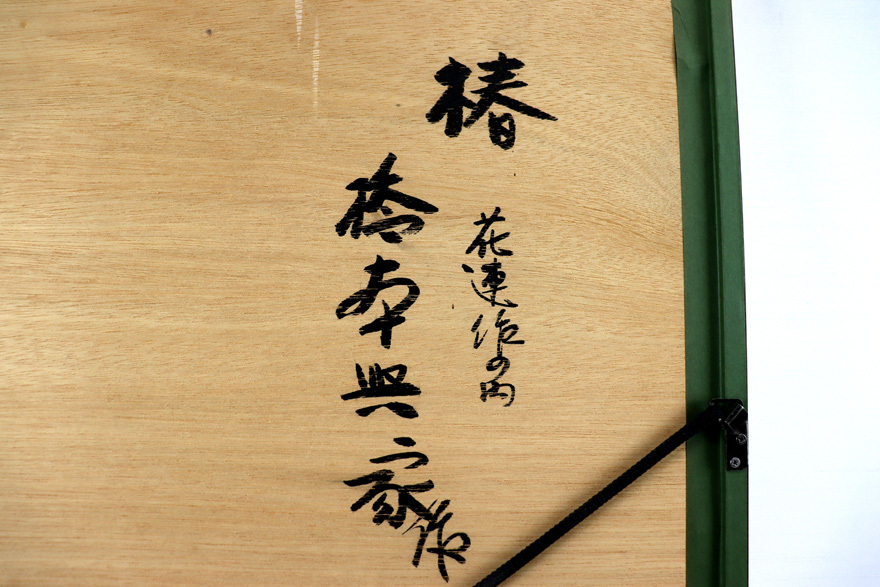 椿
花連作の内
橋本興家作